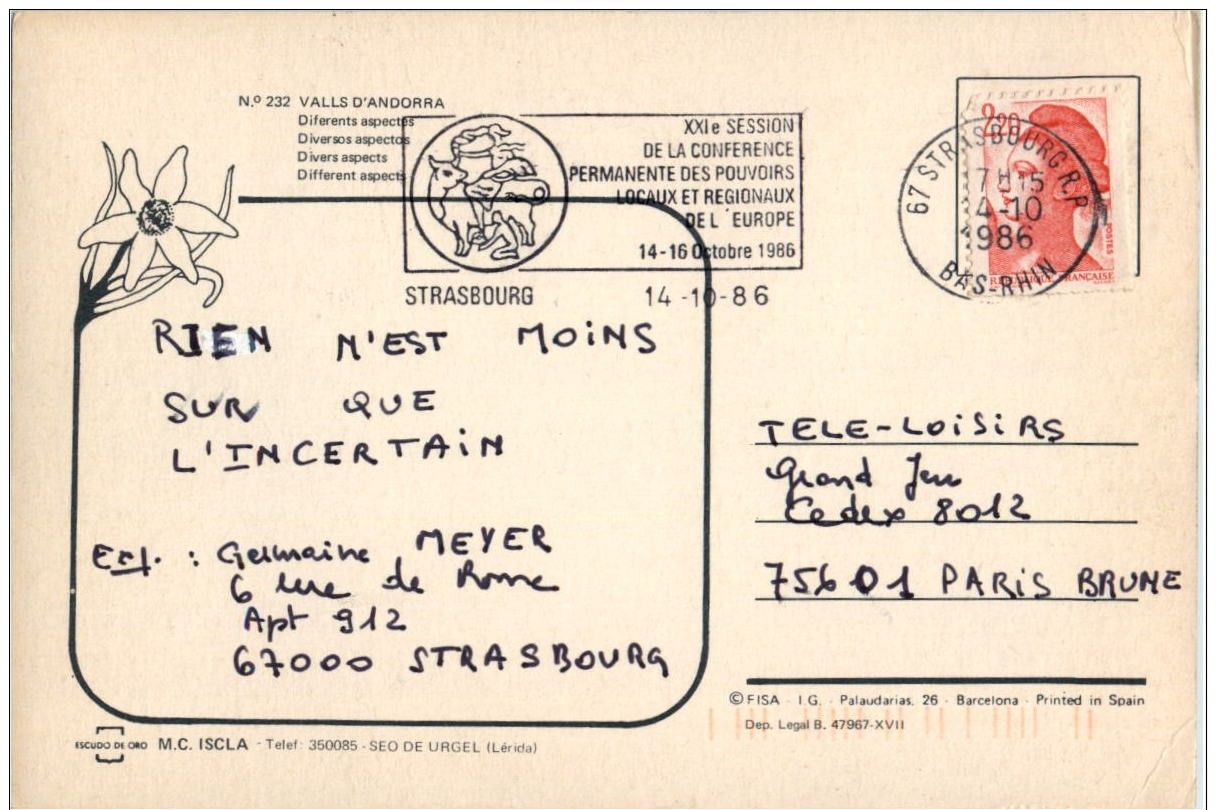 N.º 232 VALLS D'ANDORRA
Diferents aspectes
Diversos aspectos
Divers aspects
Different aspects
XXIe SESSION
DE LA CONFERENCE
PERMANENTE DES POUVOIRS
LOCAUX ET REGIONAUX
DE L'EUROPE
14-16 Octobre 1986
STRASBOURG 14-10-86
67 STRASBOURG R.P.
7H15
14-10
1986
BAS-RHIN
2,20
POSTES
REPUBLIQUE FRANCAISE
RIEN N'EST MOINS
SUR QUE
L'INCERTAIN
Exp. : Germaine MEYER
6 rue de Rome
Apt 912
67000 STRASBOURG
TELE-LOISIRS
Grand Jeu
Cedex 8012
75601 PARIS BRUNE
© FISA - I.G. - Palaudarias, 26 - Barcelona - Printed in Spain
Dep. Legal B. 47967-XVII
ESCUDO DE ORO M.C. ISCLA - Telef: 350085 - SEO DE URGEL (Lérida)